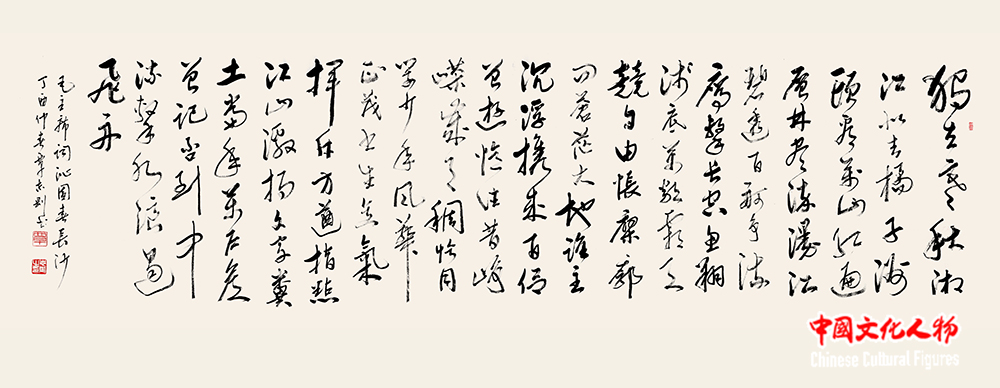 獨立寒秋湘
江北去橘子洲
頭看萬山紅遍
層林盡染漫江
碧透百舸爭流
鷹擊長空魚翔
淺底萬類霜天
競自由悵寥廓
問蒼茫大地誰主
沉浮攜來百侶
曾遊憶往昔崢
嶸歲月稠恰同
學少年風華
正茂書生意氣
揮斥方遒指點
江山激揚文字糞
土當年萬戶侯
曾記否到中
流擊水浪遏
飛舟
毛主席詞沁園春長沙
丁酉仲春
中國文化人物
Chinese Cultural Figures